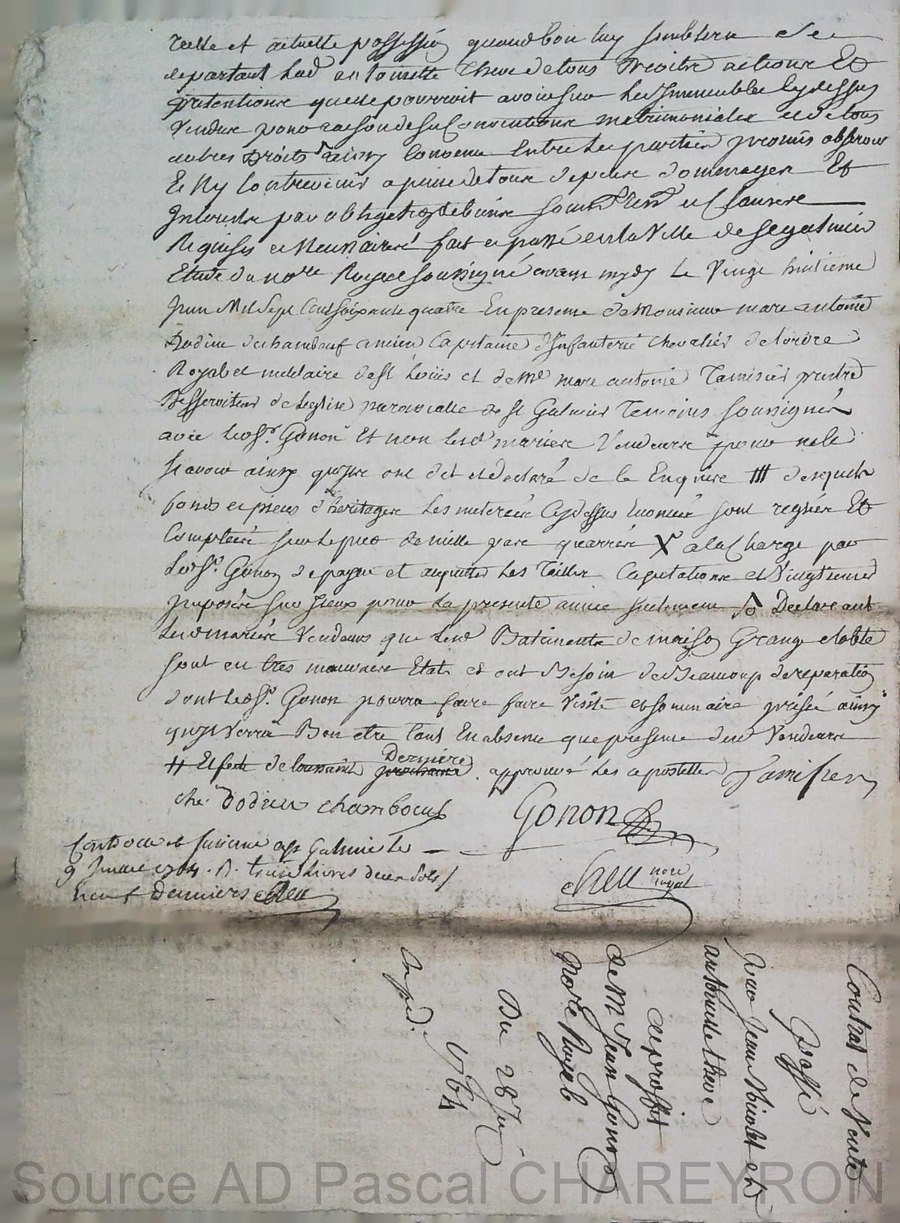 reelle et actuelle possession quand bon luy semblera et se
departant lad antoinette Theve de tous droits actions Et
pretentions quelle pourroit avoir sur les Immeubles cydessus
vendus pour raison de ses Conventions matrimoniales et de tous
autres Droits ainsy Convenu Entre les parties promis observer
Et Ny Contrevenir a peine de tous depens dommages Et
Interets par obligation de biens soum.ons ren.on et Clauses
Requises et Necessaires fait et passé en la Ville de st galmier
Etude du no.re Royal soussigné avant mydy Le Vingt huitieme
Juin Mil Sept Cent soixante quatre En presence de Monsieur marc antoine
Dodieu de chambœuf ancien Capitaine d'Infanterie chevalier de l'ordre
Royal et militaire de st Loüis et de M.e marc antoine Tamisier pretre
Desserviteur de L'eglise parroissialle de st Galmier Temoins soussignés
avec led.sr. Gonon Et non lesd mariés Vendeurs pour ne le
sçavoir ainsy qu'ils ont dit et declaré de ce Enquis ttt desquels
fonds et pieces d'heritages les meterées Cydessus Enoncées sont reglées Et
Comptées sur le pied de mille pas quarrés X a la Charge par
led.sr. Gonon de payer et acquitter Les Tailles Capitations et Vingtiemes
Imposés sur Iceux pour la presente année seulement Declarant
lesd mariés Vendeurs que lesd Batiments de maison Grange et etable
sont en tres mauvais Etats et ont Besoin de Beaucoup de reparations
dont led.sr. Gonon pourra faire faire Visite et sommaire prisée ainsy
qu'il Verra Bon etre tant En absence que presence desd Vendeurs
tt Et fete de toussaint Derniere prochaine approuvé les apostilles Tamisier
che. Dodieu chambœuf Gonon
Theve no.re royal
Controllé et Insinué a st Galmier le
9 Juillet 1764. R. treize Livres deux sols
neuf Deniers Theve
Contrat de Vente
passé
par Jean Nicolet et
antoinette theve
a proffit
de M.e Jean Gonon
No.re Royal
Du 28 Juin
1764
Exped.
Source AD Pascal CHAREYRON